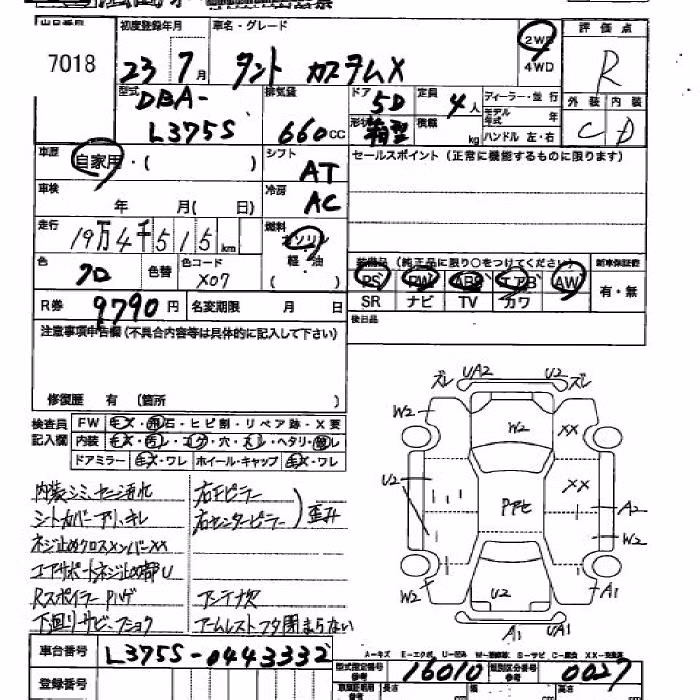 7018
初度登録年月 車名・グレード 評価点
23 7月 タント カスタムX 2WD 4WD R
型式 DBA-L375S 排気量 660cc ドア 5D 形状 箱型 定員 4人 積載 kg ディーラー・並行 モデル年式 年 ハンドル 左・右 外装 C 内装 D
車歴 自家用・( ) シフト AT セールスポイント(正常に機能するものに限ります)
車検 年 月( 日) 冷房 AC
走行 19万4千515km 燃料 ガソリン 軽・油 ( )
色 クロ 色替 色コード X07
装備品(純正品に限り○をつけてください) 新車保証書
PS PW ABS エアB AW 有・無
SR ナビ TV カワ
R券 9790円 名変期限 月 日 後日品
注意事項申告欄(不具合内容等は具体的に記入して下さい)
修復歴 有 (箇所 )
検査員記入欄 FW キズ・飛石・ヒビ割・リペア跡・X要
内装 キズ・汚レ・コゲ・穴・スレ・ヘタリ・
ドアミラー キズ・ワレ ホイール・キャップ キズ・ワレ
ズレ UA2 U2 ズレ
W2 W2 XX
U2 P XX A2
W2
W2 U2 A1
A1 UA1
内装シミ、ヤニ汚れ
シートカバーアリ、キレ
ネジ止めクロスメンバーXX
エアサポートネジ止め部U
Rスポイラー Pハゲ
下廻りサビ、フショク
右Fピラー
右センターピラー 歪み
アンテナ欠
アームレストフタ閉まらない
A-キズ E-エクボ U-凹み W-補修跡 S-サビ C-腐食 XX-交換済
車台番号 L375S-0443332
型式指定番号 参考 16010 類別区分番号 参考 0027
登録番号
車庫証明用 参考 長さ cm 幅 cm 高さ cm